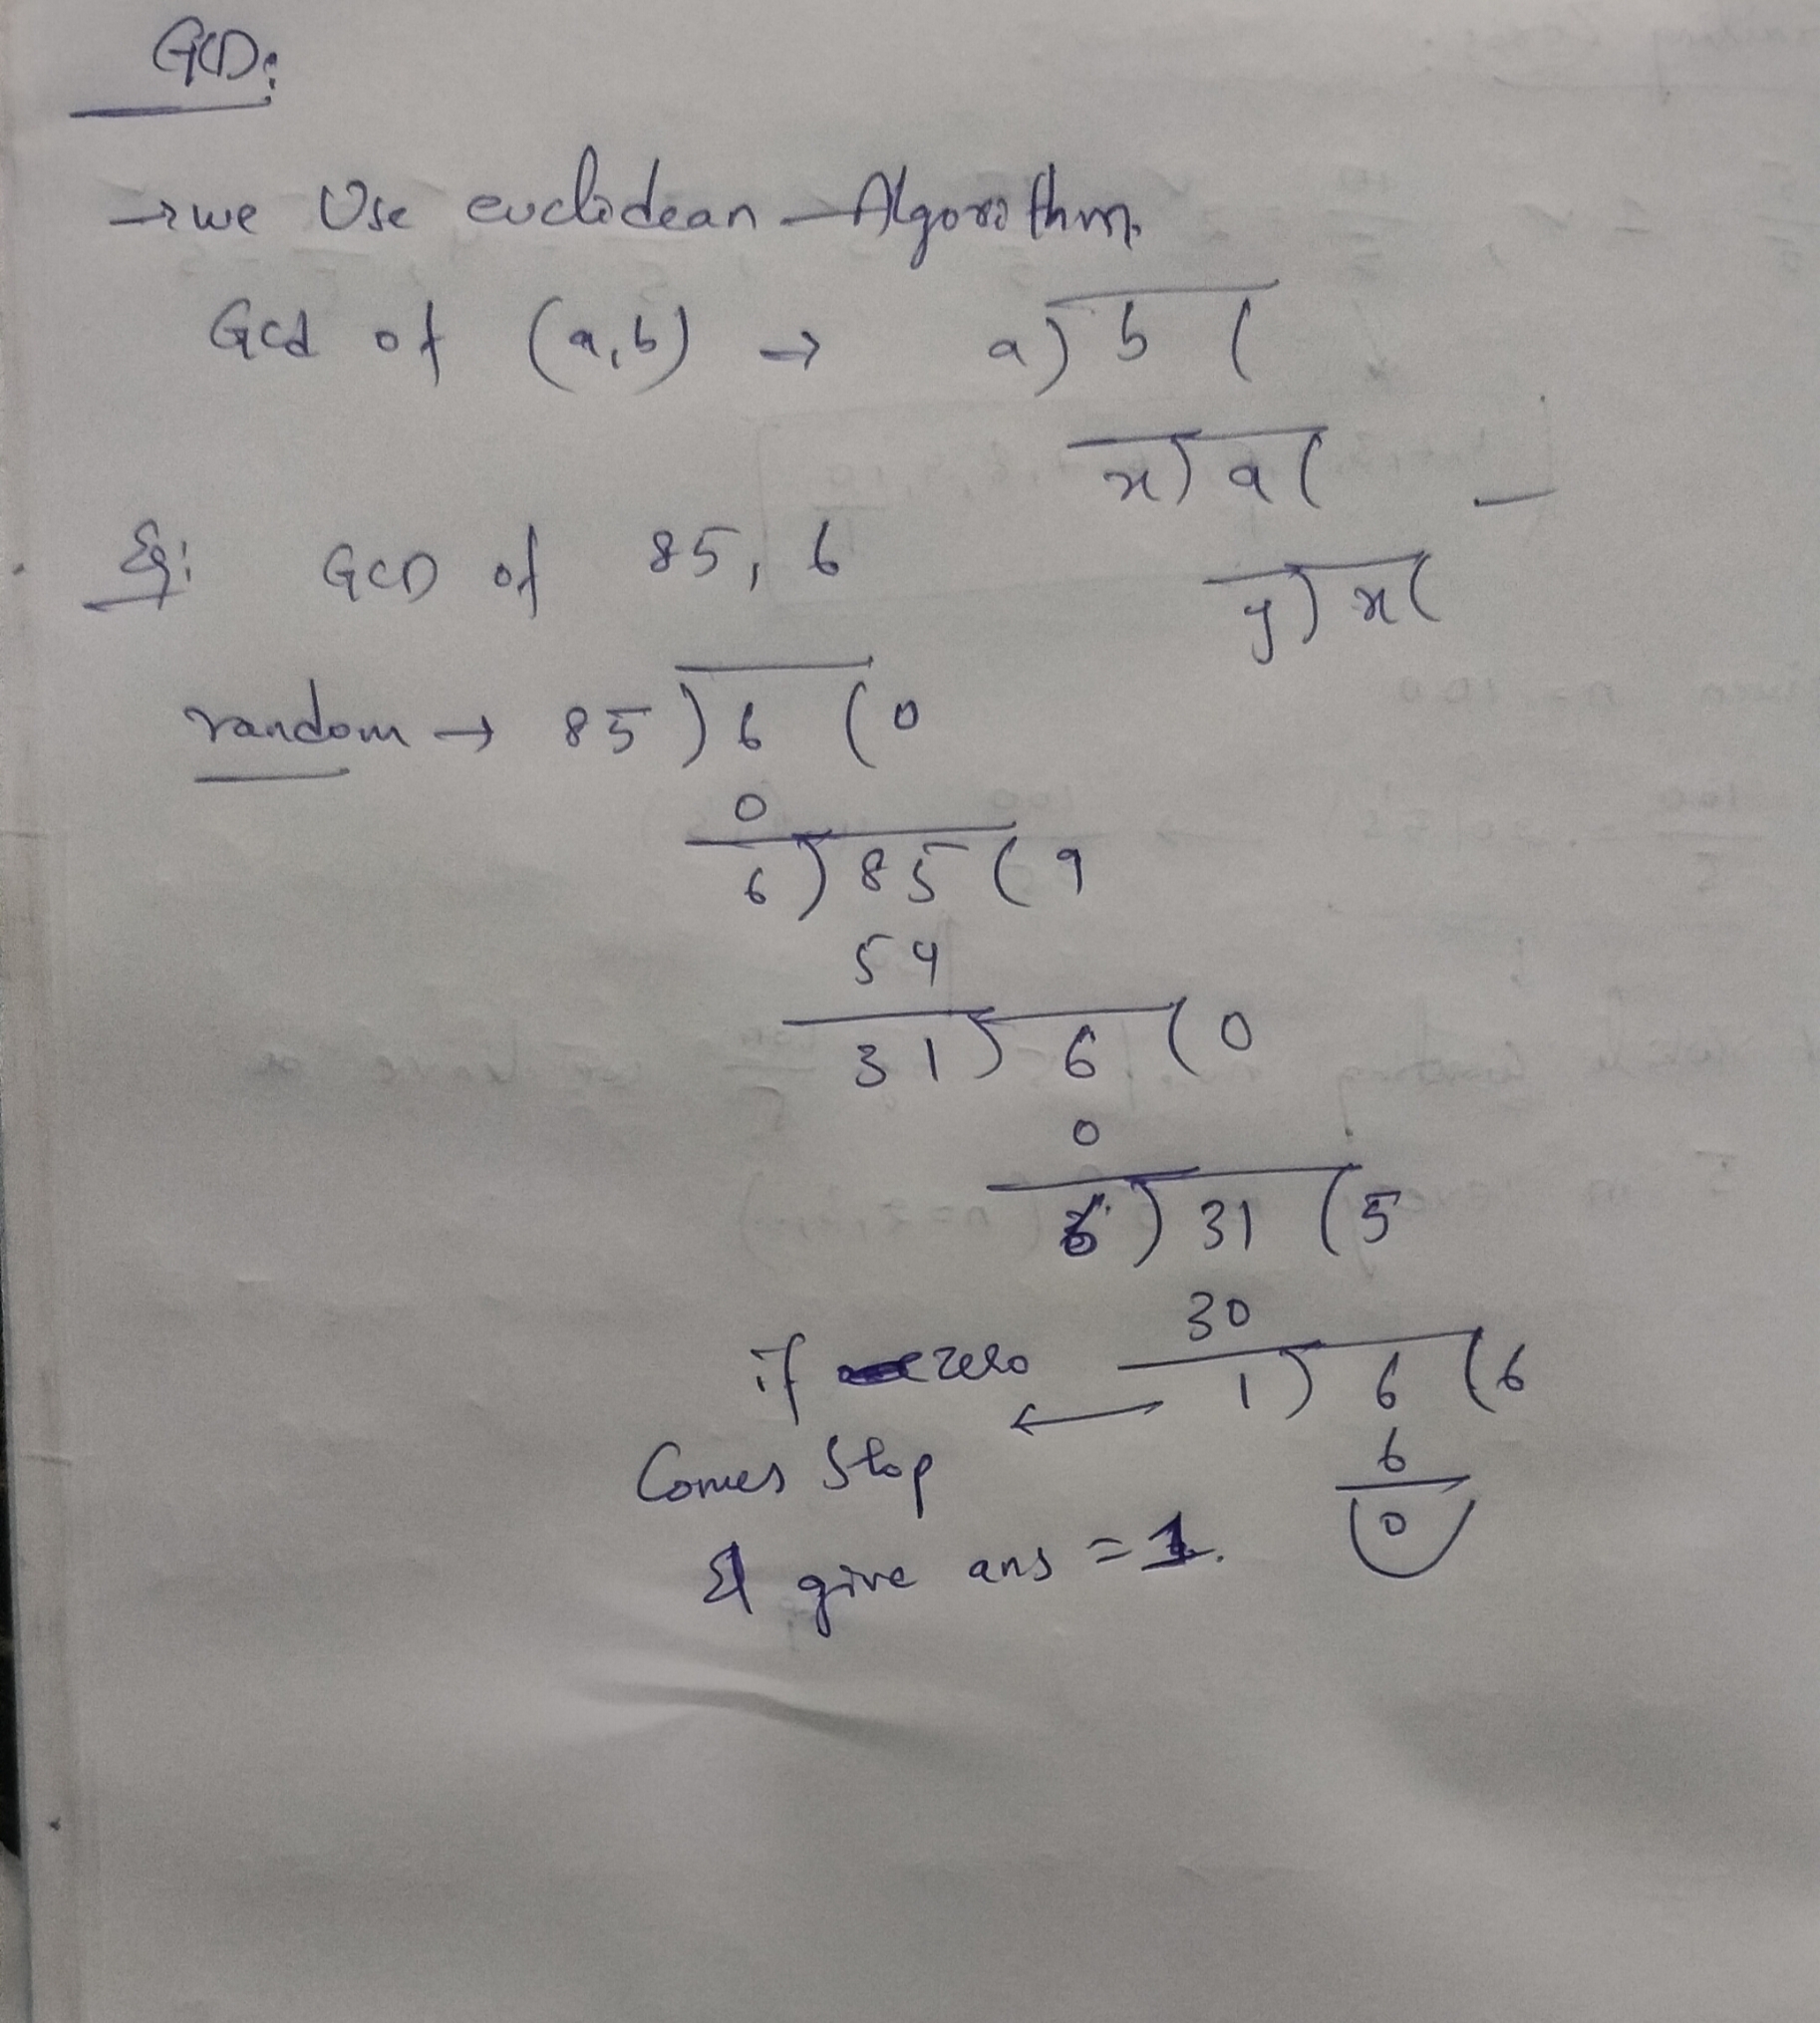 GCD:
→ we Use euclidean Algorithm.
Gcd of (a,b) → a) b (
x) a (
Eg: GCD of 85, 6
y) x (
random → 85 ) 6 ( 0
0
6 ) 85 ( 9
54
31 ) 6 ( 0
0
6 ) 31 ( 5
30
if zero 1 ) 6 ( 6
Comes stop 6
0
& give ans = 1.